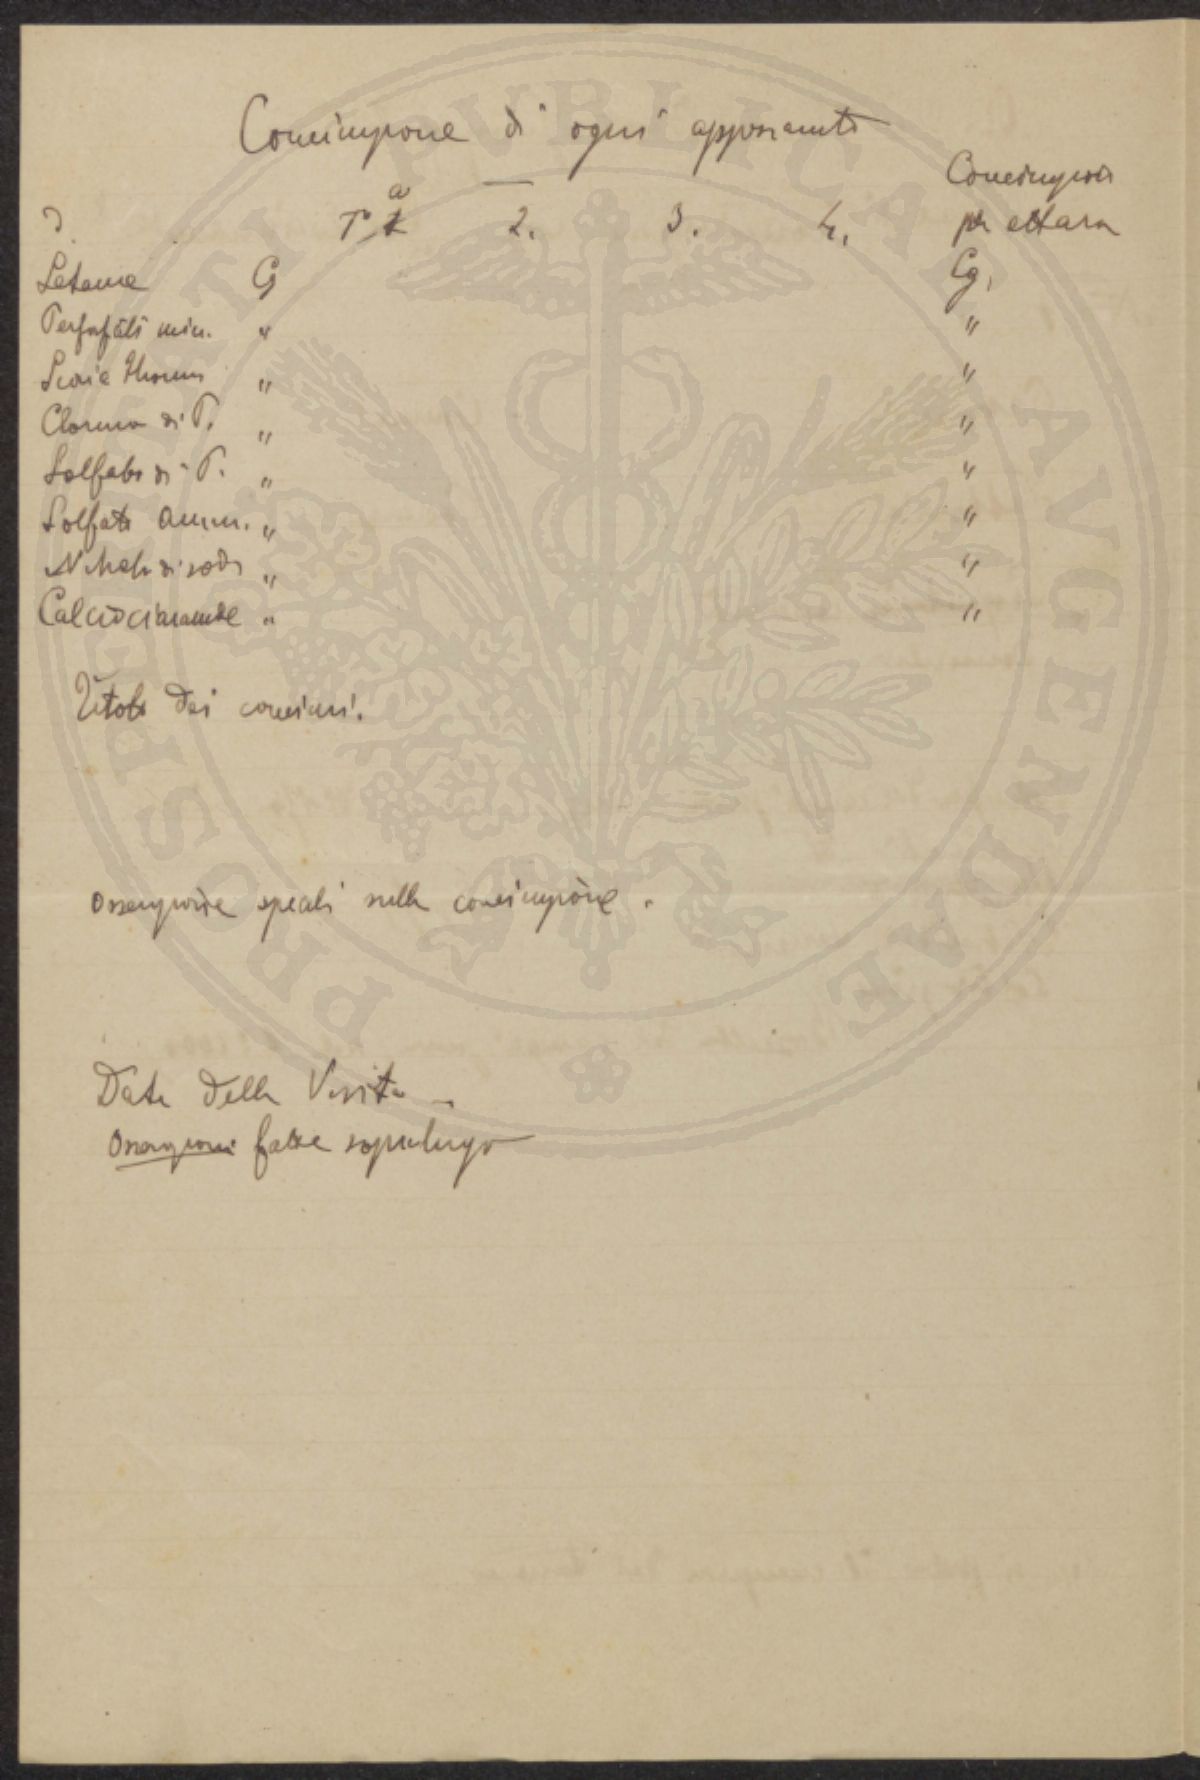 Concimazione di ogni appezzamento
Concimazioni
2. 3. 4. per ettaro
Letame Cg Cg.
Perfosfati min. " "
Scorie Thomas " "
Cloruro di P. " "
Solfato di P. " "
Solfato amm. " "
Nitrato di soda " "
Calciocianamide " "
Titolo dei concimi.
Osservazioni speciali sulla concimazione.
Data della Visita
Osservazioni fatte sopraluogo
PROSPERITATI PVBLICAE AVGENDAE